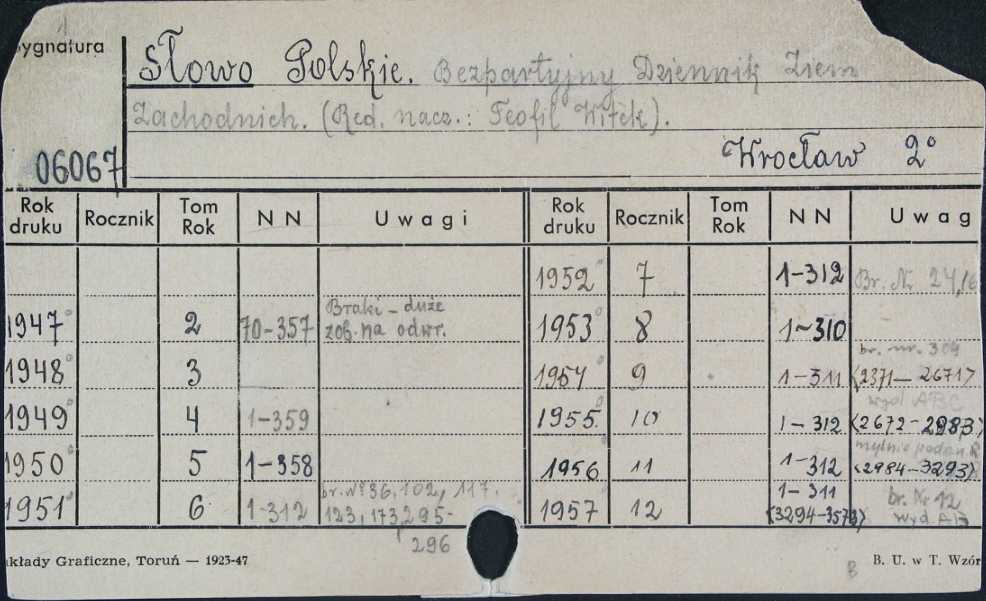 ygnatura
Słowo Polskie. Bezpartyjny Dziennik Ziem
Zachodnich. (Red. nacz.: Teofil Witek).
06067
Wrocław 2°
Rok druku Rocznik Tom Rok NN Uwagi Rok druku Rocznik Tom Rok NN Uwag
1952 7 1-312 Br. Nr 24,
1947 2 70-357 Braki - duże zob. na odwr. 1953 8 1-310
1948 3 1954 9 1-311 br. nr. 304 (2371-2671)
1949 4 1-359 1955 10 1-312 (2672-2983)
1950 5 1-358 1956 11 1-312 mylnie podan (2984-3293)
1951 6 1-312 br. № 36, 102, 117. 123, 173, 295- 296 1957 12 1-311 (3294-3573) br. Nr 12
kłady Graficzne, Toruń — 1923-47
B
B. U. w T. Wzór